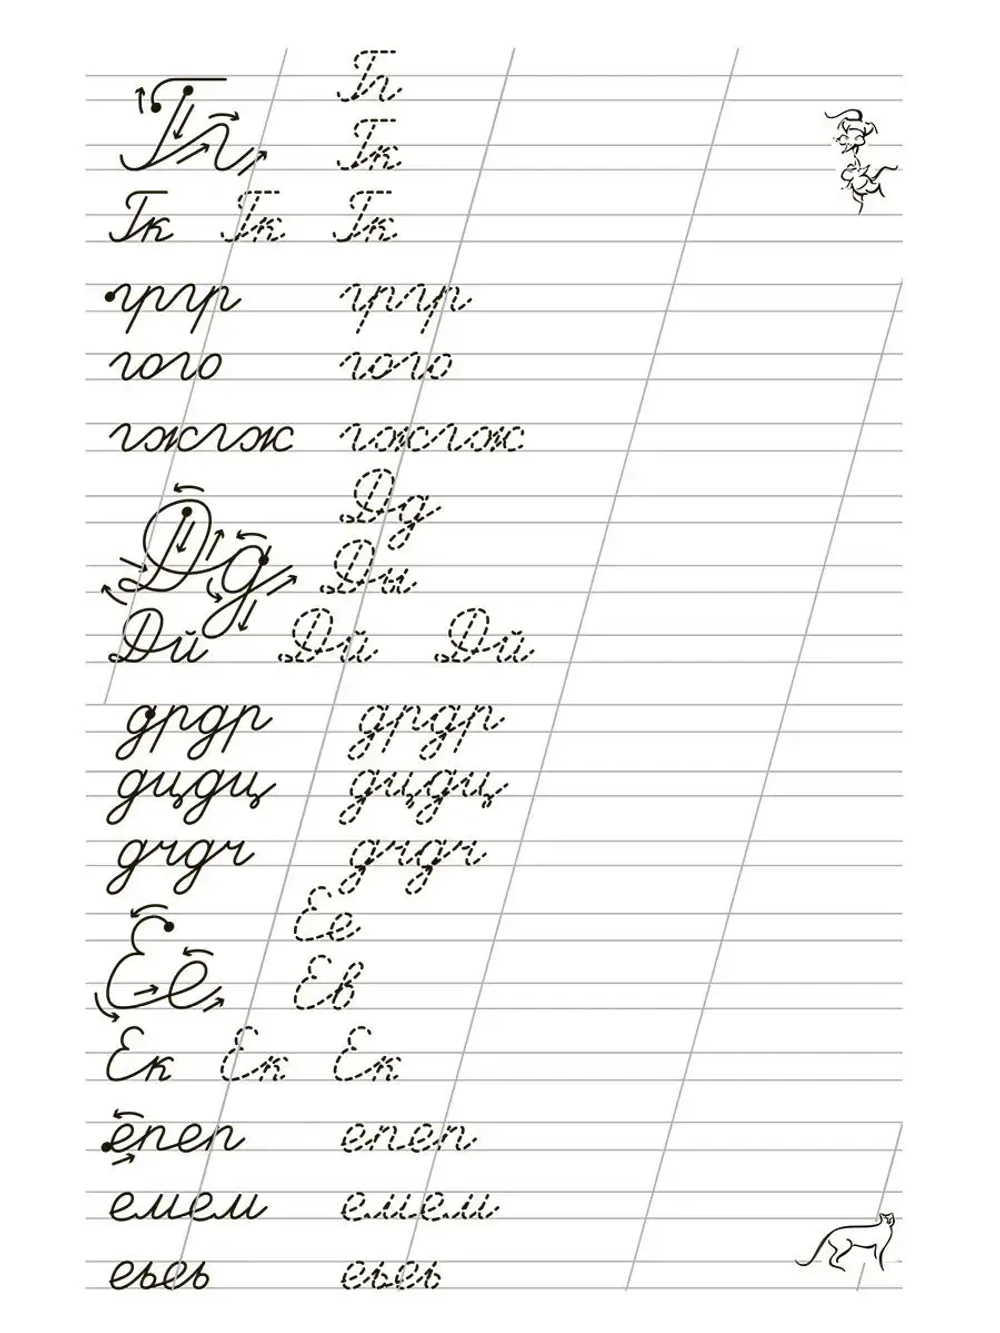 Гг
Гг
Гк
Гк Гк Гк
гргр гргр
гого гого
гжгж гжгж
Дд
Дд
Ды
Дй Дй Дй
дрдр дрдр
дцдц дцдц
дчдч дчдч
Ее
Ее
Ев
Ек Ек Ек
епеп епеп
емем емем
еьеь еьеь